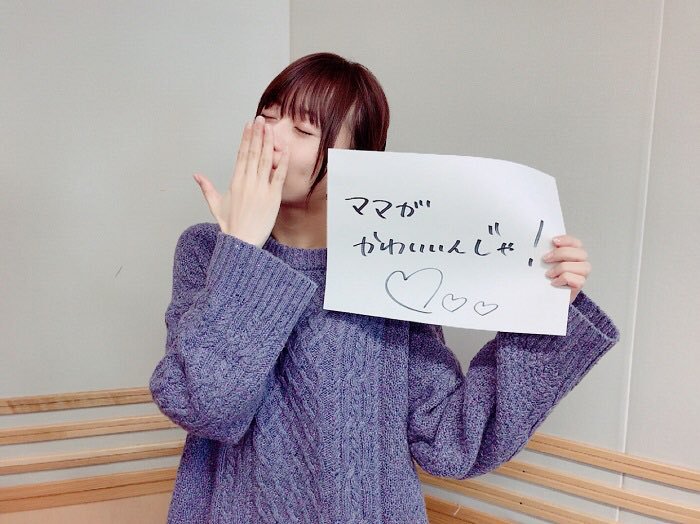 ママが
かわいいんじゃ!